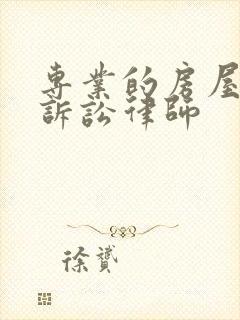 專業的房屋
訴訟律師
徐贇